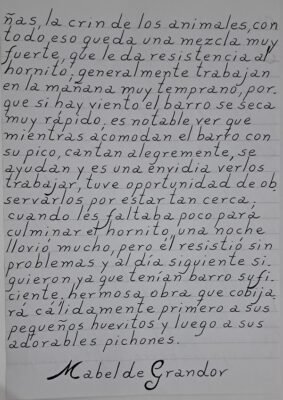 ñas, la crin de los animales, con
todo eso queda una mezcla muy
fuerte, que le da resistencia al
hornito, generalmente trabajan
en la mañana muy temprano, por-
que si hay viento el barro se seca
muy rápido, es notable ver que
mientras acomodan el barro con
su pico, cantan alegremente, se
ayudan y es una envidia verlos
trabajar, tuve opportunidad de ob
servarlos por estar tan cerca;
cuando les faltaba poco para
culminar el hornito, una noche
llovió mucho, pero él resistió sin
problemas y al día siguiente si-
guieron ya que tenían barro sufi-
ciente, hermosa obra que cobija-
rá cálidamente primero a sus
pequeños huevitos y luego a sus
adorables pichones.
Mabel de Grandor